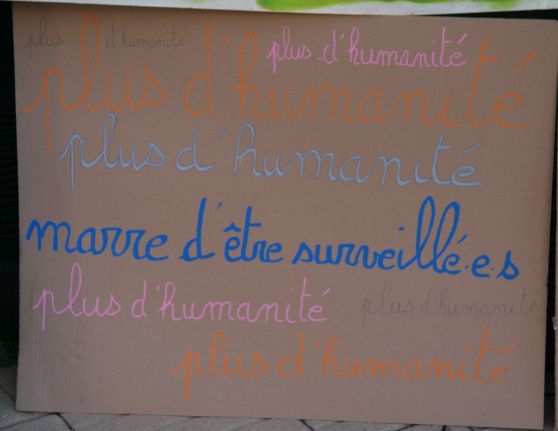 plus d'humanité
plus d'humanité
plus d'humanité
plus d'humanité
marre d'être surveillé.e.s
plus d'humanité
plus d'humanité
plus d'humanité